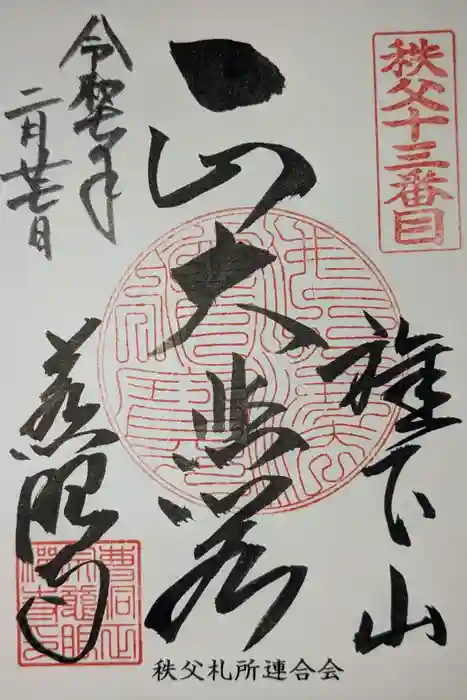 秩父十三番目
旗下山
大悲
慈眼寺
令和七年
二月廿七日
秩父札所連合会